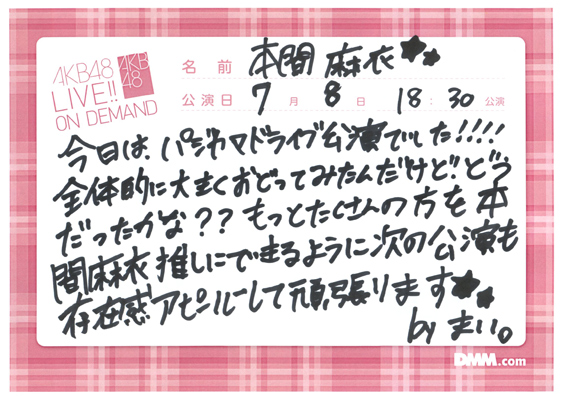 AKB48
LIVE!!
ON DEMAND
AKB
48
名前 本間 麻衣★★
公演日 7月8日 18:30公演
今日は、パジャマドライブ公演でした!!!!
全体的に大きくおどってみたんだけど!!どう
だったかな?? もっとたくさんの方を本
間麻衣推しにできるように次の公演も
存在感アピールして頑張ります★★
by まい。
DMM.com